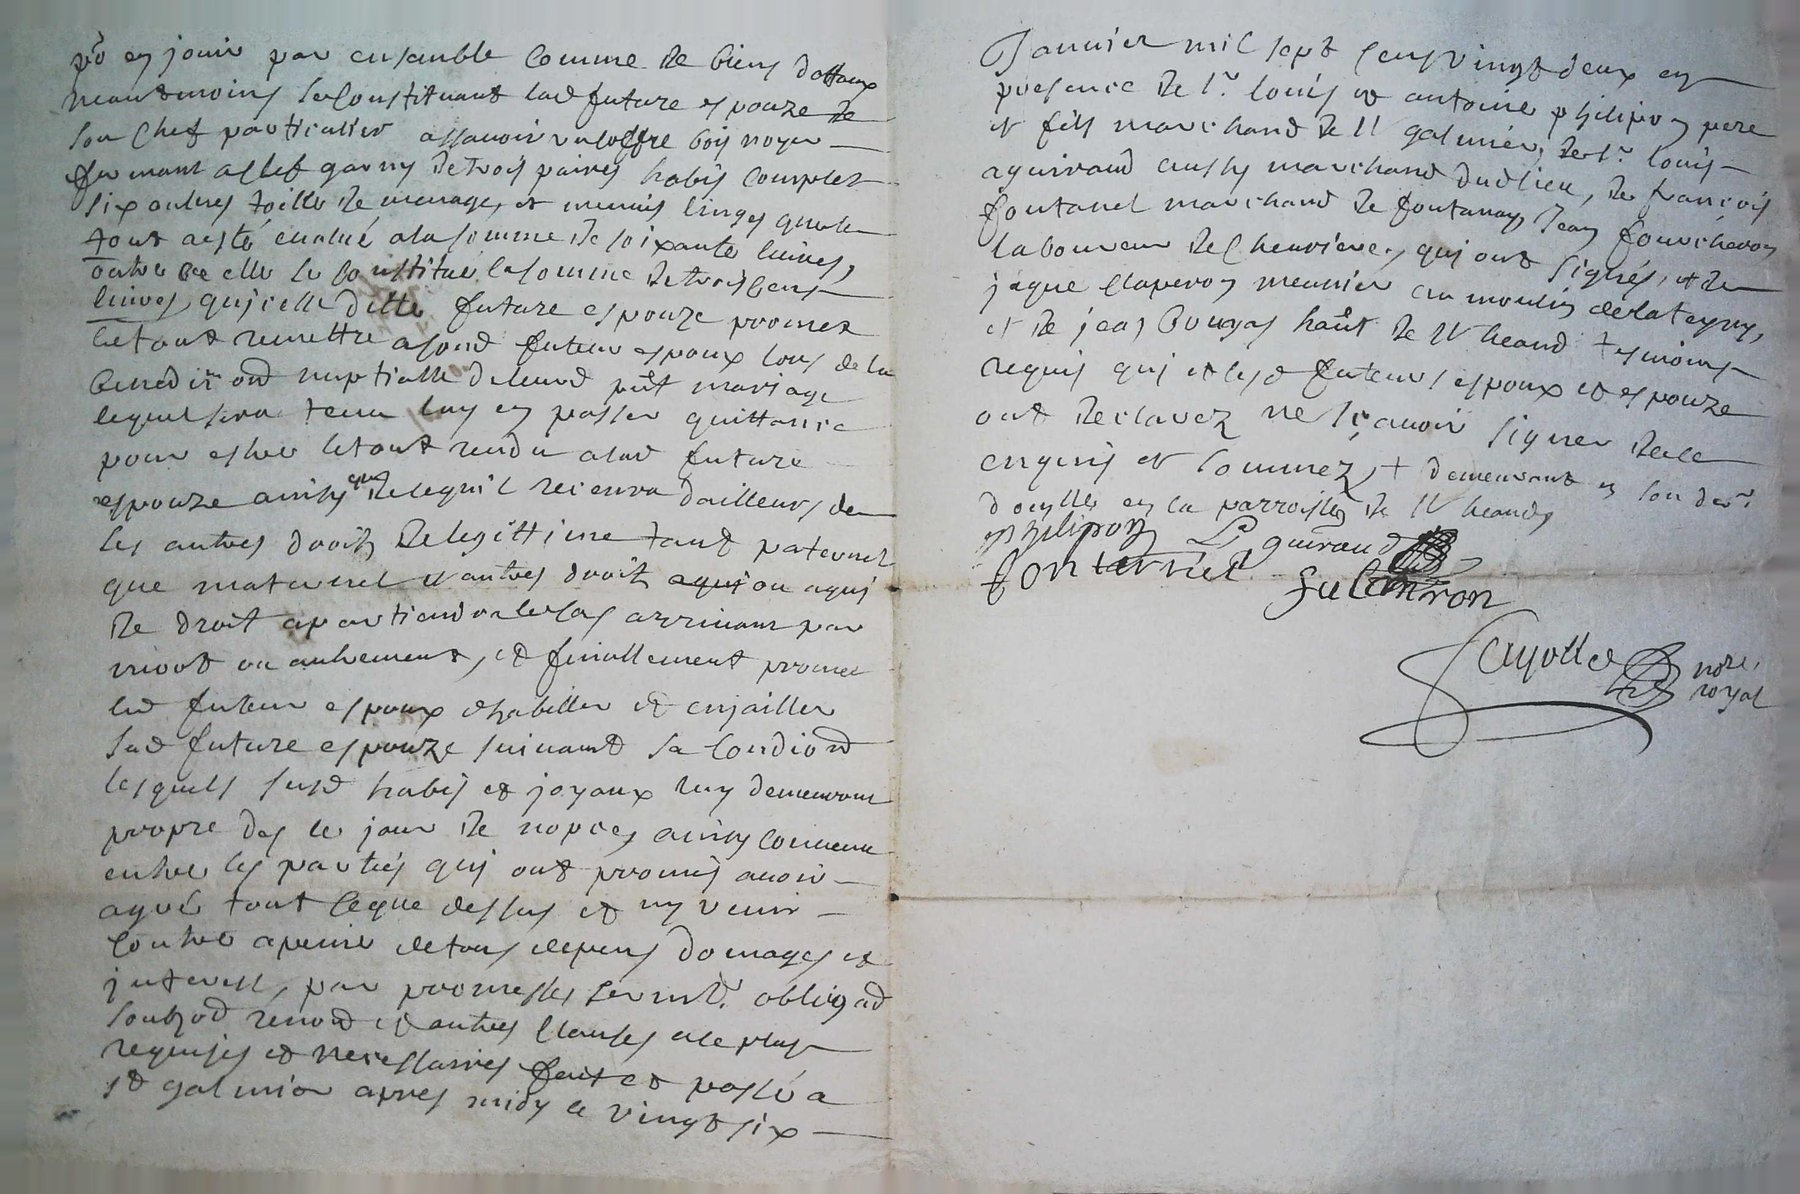 pr en jouir par ensemble comme de biens dottaux
neantmoins se Constituant lad future espouze de
son Chef particulier assavoir un coffre bois noyer
fermant a clef garny de trois paires habis complet
six autres toille de menage, et menus linges que le
tout a esté evalué a la somme de soixante livres,
outre ce elle se constitue la somme de trois cens
livres, qu'icelle ditte future espouze promet
le tout remettre a sond futeur espoux lors de la
benediõn nuptialle de leurd pñt mariage
lequel sera tenu luy en passer quittance
pour estre le tout rendu a lad future
espouze ainsy que de ce qu'il recevra d'ailleurs de
ses autres droits de legittime tant paternel
que maternel et autres droits a qui ou a qui
de droit apartiendra le cas arrivant par
mort ou autrement, et finallement promet
led futeur espoux d'habiller et enjailler
sad future espouze suivant sa condiõn
lesquels susd habis et joyaux luy demeureront
propre des le jour de nopces ainsy convenu
entre les parties qui ont promis avoir
agreé tout ce que dessus et n'y venir
contre a peine de tous depens domages et
interest, par promesses sermt. obligaõn
soubzõn renonõn et autres clauses a ce plus
requises et necessaires fait et passé a
st galmier apres midy le vingt six
Janvier mil sept cens vingt deux en
presence de sr. louis et antoine philipon pere
et fils marchand de st galmier, de sr. louis
aguiraud aussy marchand dud lieu, de françois
fontanel marchand de fontanay, Jean fourcheron
laboureur de Chevrieres, qui ont signés, et de
jaque Claperon meunier au moulin de lateyny,
et de jean Bougas hañt de st heand tesmoins
requis qui et lesd futeurs espoux et espouze
ont declarez ne sçavoir signer de ce
enquis et sommez + demeurant en son dert.
domylle en la parroisse de st heand
philipon La guiraud
fontannel
Jayolle nore.
royal